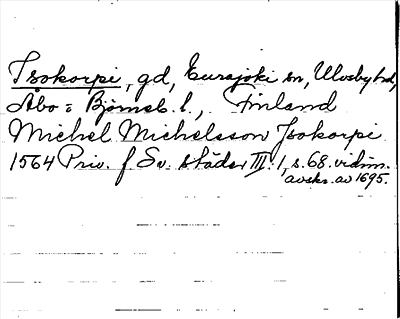 Isokorpi, gd, Eurajoki sn, Ulvsby hd,
Åbo = Björneb. l., Finland
Michel Michelsson Isokorpi
1564 Priv. f. Sv. städer III:1, s. 68. vidim.
avskr. av 1695.